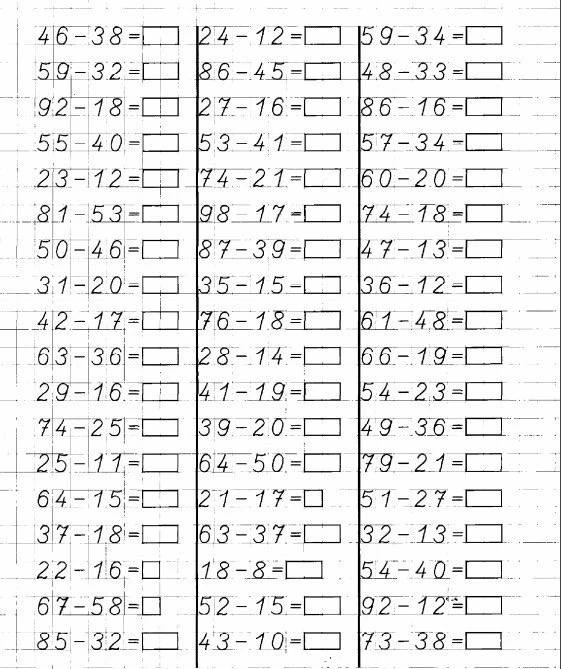 46-38= 24-12= 59-34=
59-32= 86-45= 48-33=
92-18= 27-16= 86-16=
55-40= 53-41= 57-34=
23-12= 74-21= 60-20=
81-53= 98-17= 74-18=
50-46= 87-39= 47-13=
31-20= 35-15= 36-12=
42-17= 76-18= 61-48=
63-36= 28-14= 66-19=
29-16= 41-19= 54-23=
74-25= 39-20= 49-36=
25-11= 64-50= 79-21=
64-15= 21-17= 51-27=
37-18= 63-37= 32-13=
22-16= 18-8= 54-40=
67-58= 52-15= 92-12=
85-32= 43-10= 73-38=